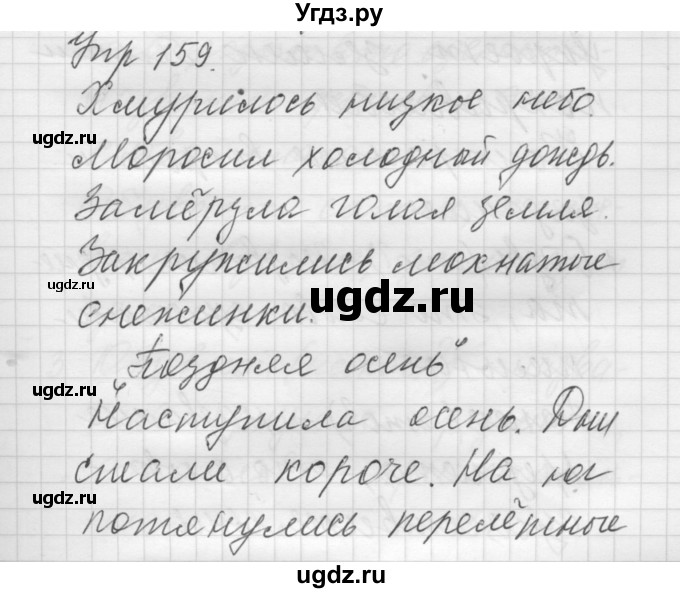 Угдз.ру
Упр 159.
Хмурилось низкое небо.
ugdz.ru
Моросил холодный дождь.
ugdz.ru
Замёрзла голая земля.
Закружились мохнатые
ugdz.ru
ugdz.ru
снежинки.
ugdz.ru
"Поздняя осень"
Наступила осень. Дни
стали короче. На юг
ugdz.ru
ugdz.ru
потянулись перелётные
ugdz.ru